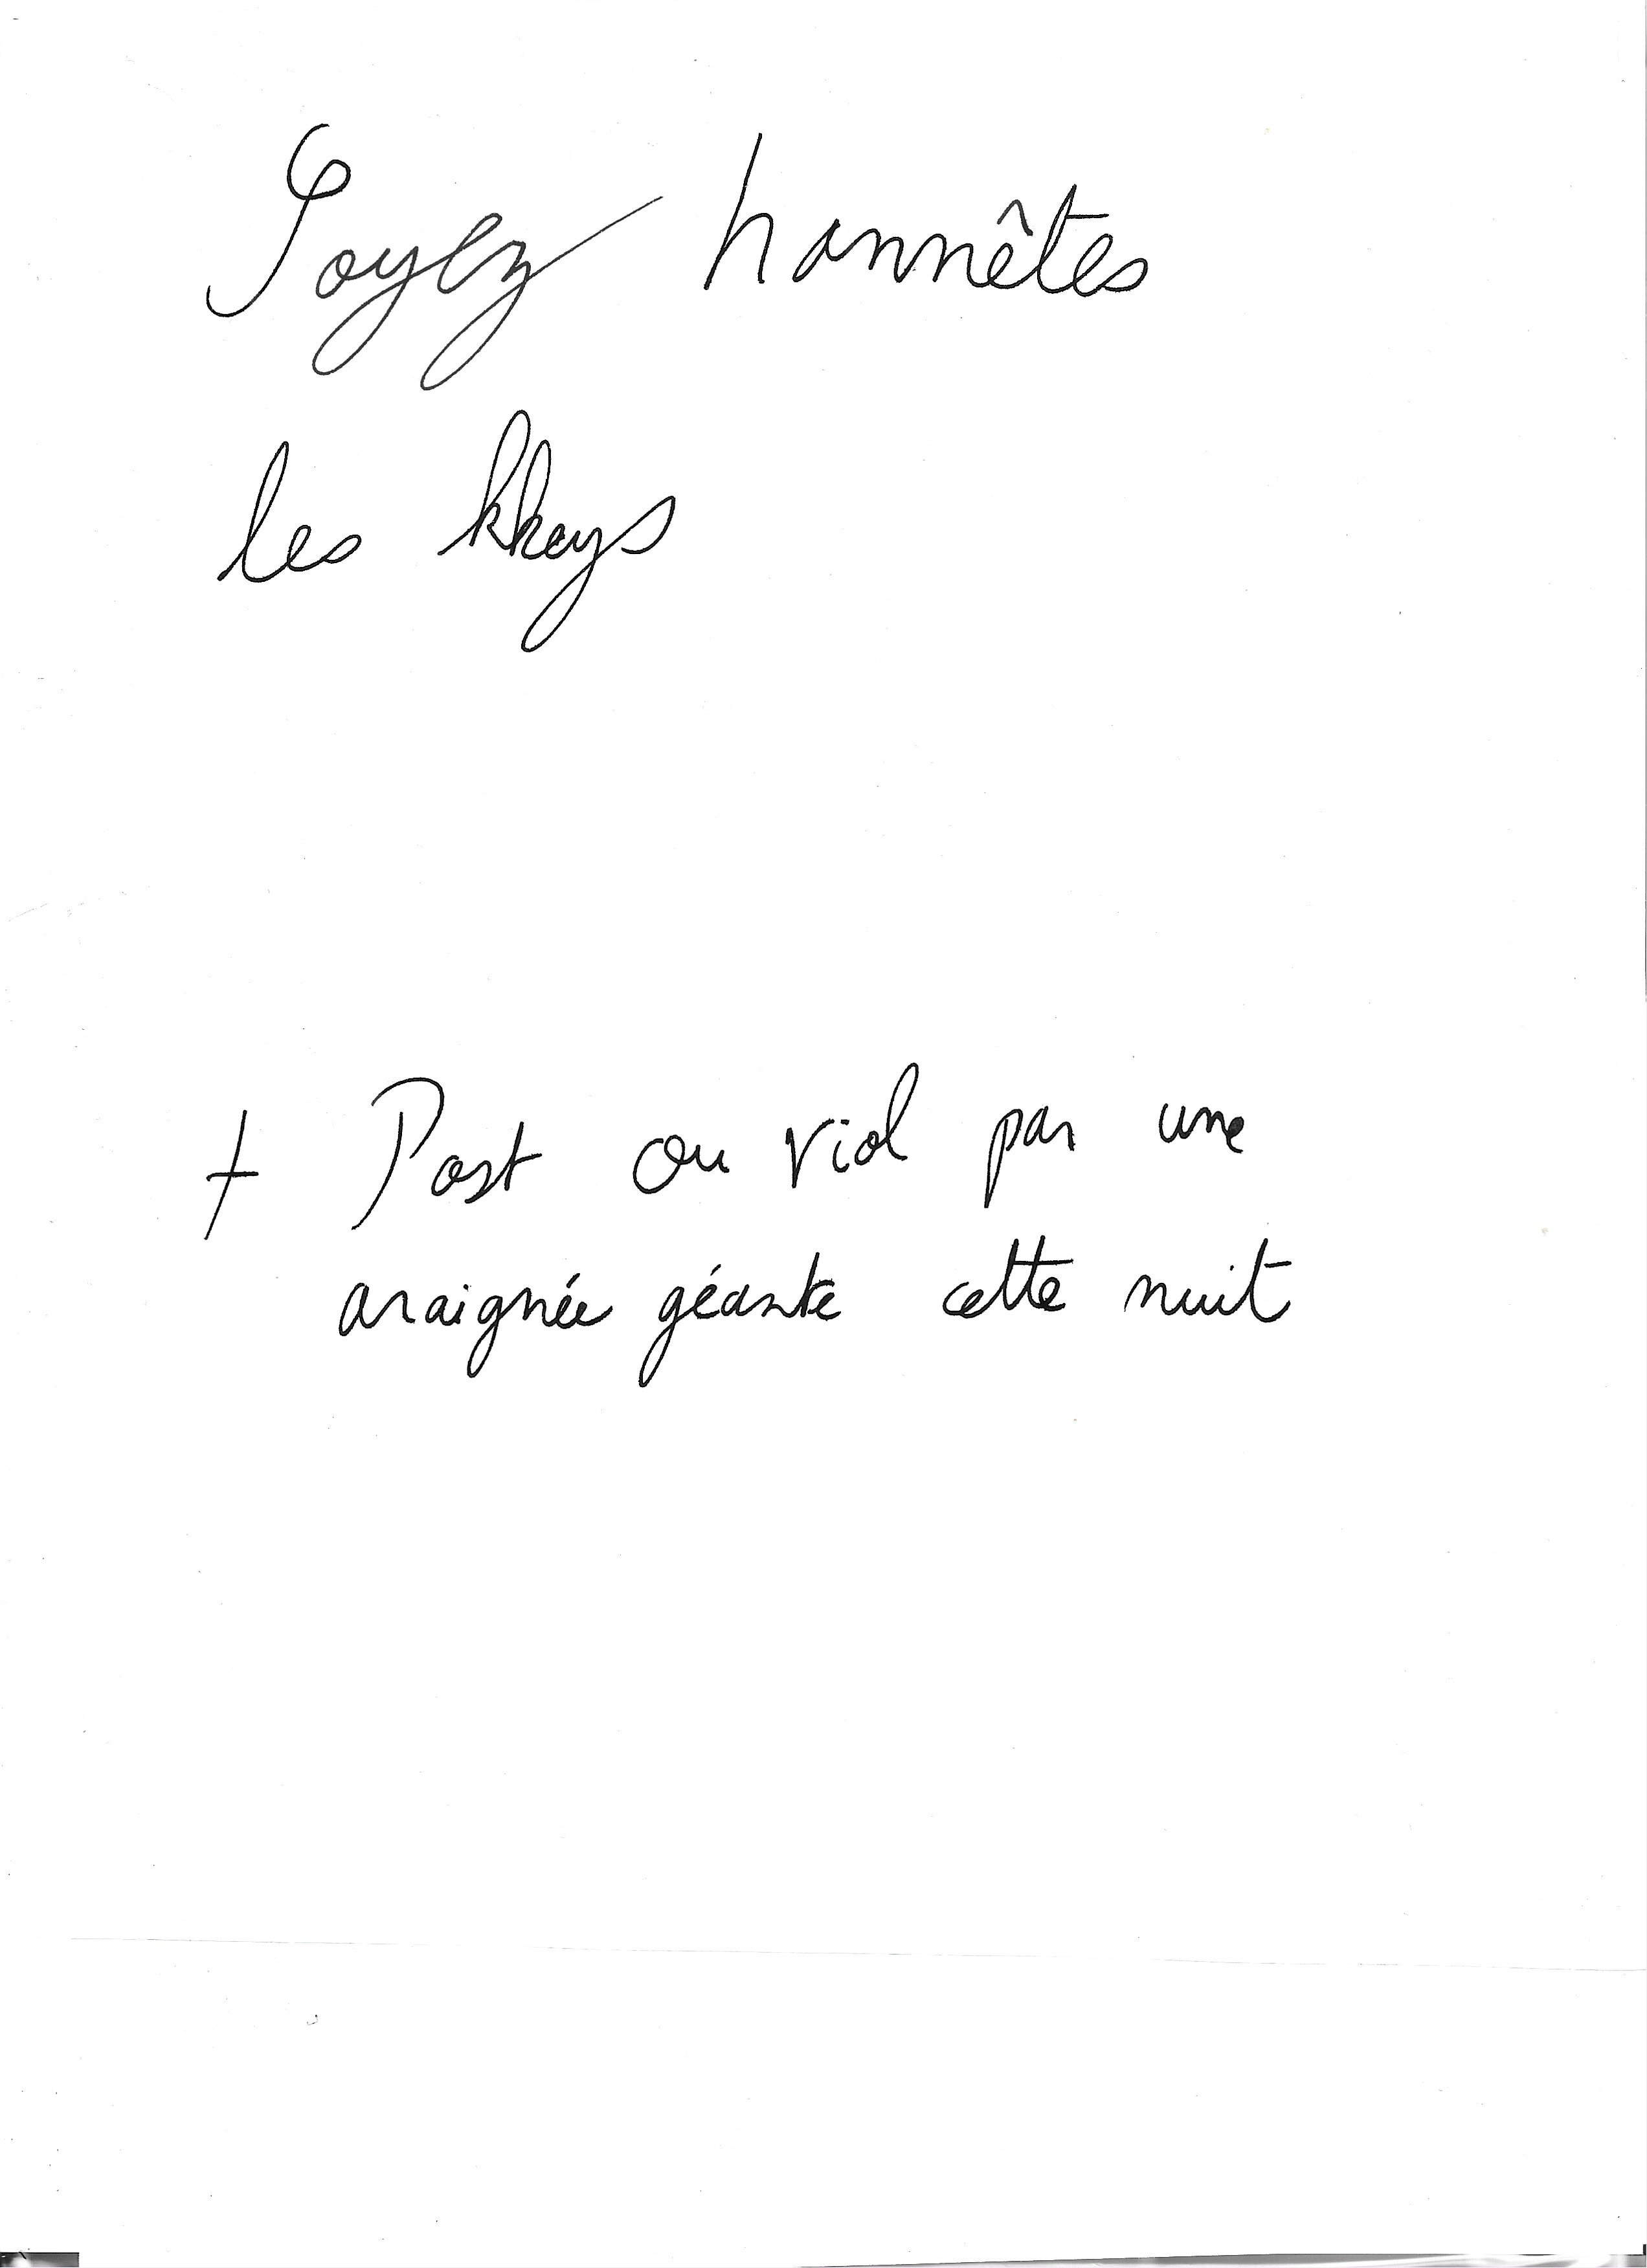 Soyez honnêtes
les kheys
+ Post ou viol par une
araignée géante cette nuit